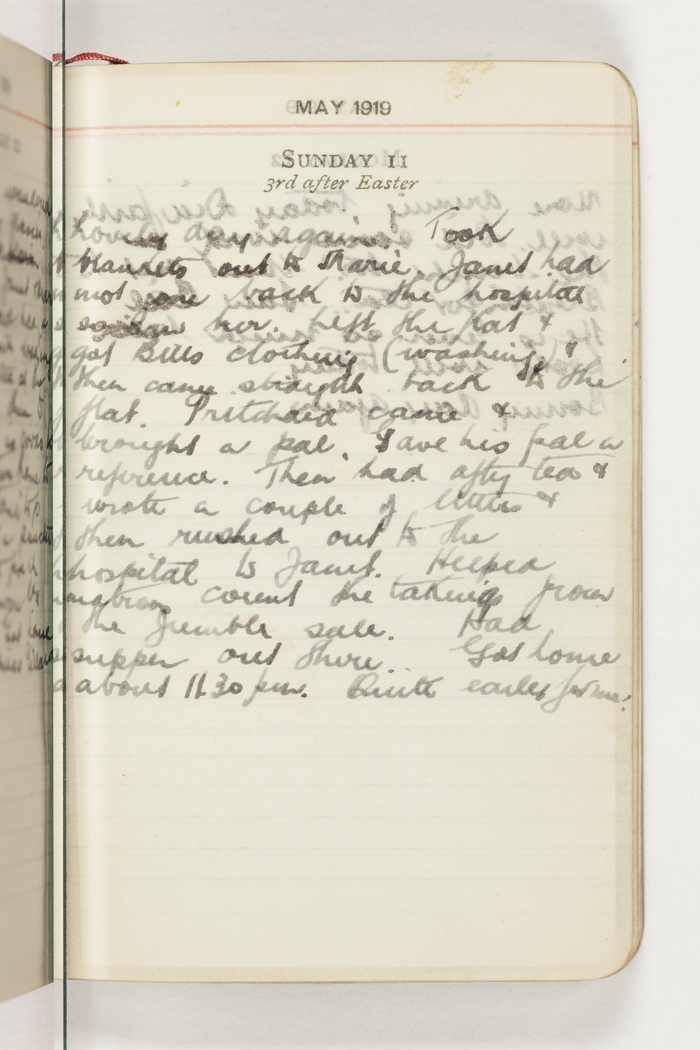 MAY 1919
SUNDAY 11
3rd after Easter
Lovely day again. Took
blankets out to Marie. Janet had
not gone back to the hospital
so saw her. Left the flat &
got Bills clothing (washing) &
then came straight back to the
flat. Pritchard came &
brought a pal. Gave his pal a
reference. Then had aftn tea &
wrote a couple of letters &
then rushed out to the
hospital to Janet. Helped
matron count the takings from
the Jumble sale. Had
supper out there. Got home
about 11.30 pm. Quite early for me.